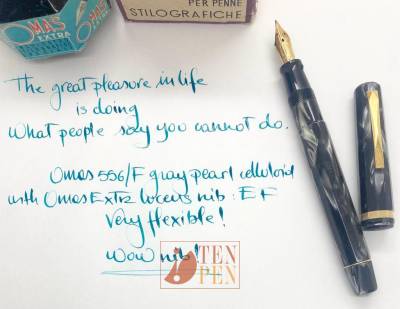 OMAS
EXTRA
PER PENNE
STILOGRAFICHE
The great pleasure in life
is doing
what people say you cannot do.
Omas 556/F gray pearl celluloid
with Omas Extra lucens nib: EF
Very flexible!
Wow nib!
TEN
PEN